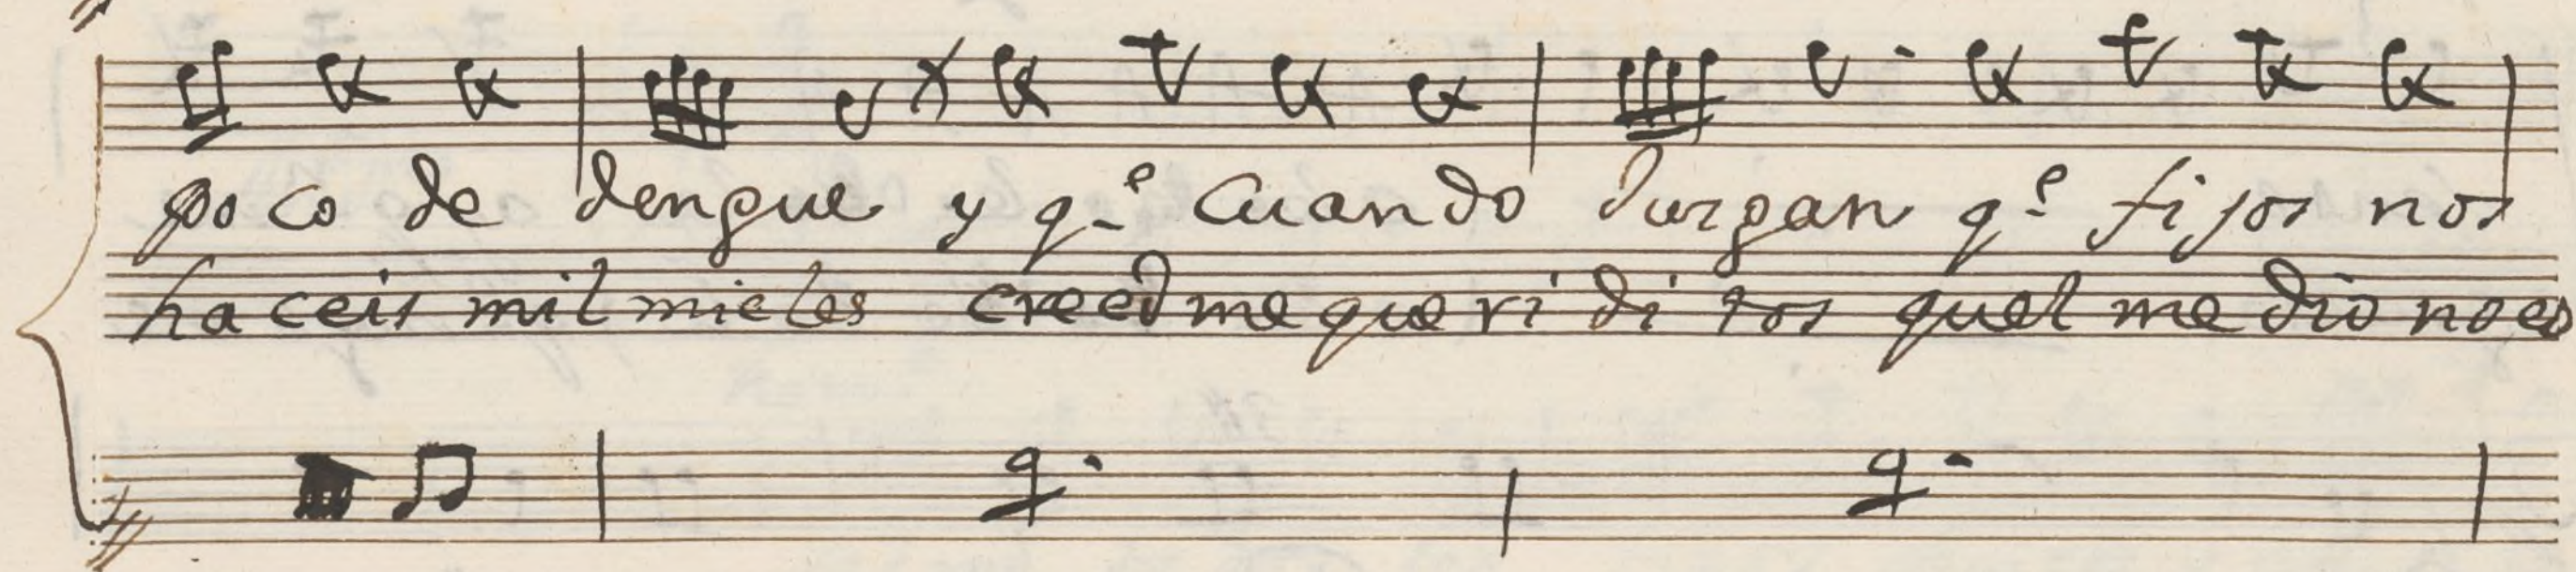 poco de dengue y q.e Cuando Juzgan q.e fijos nos
haceis mil mieles creedme queri di tos quel me dio no es